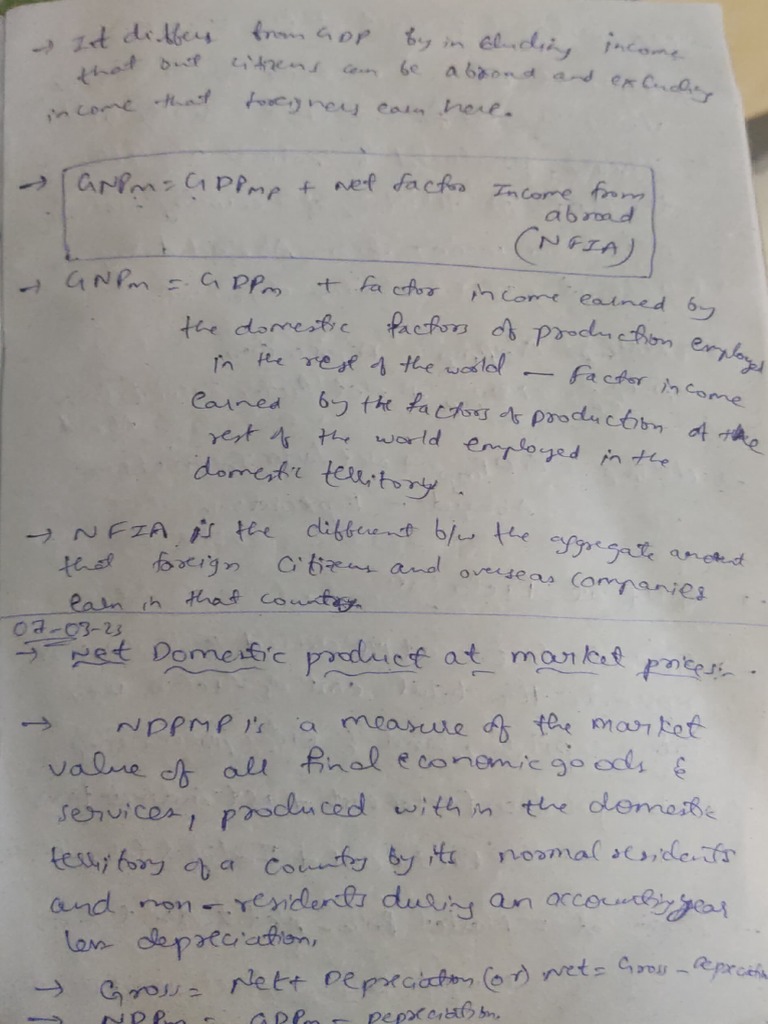 → It differs from GDP by including income
that out citizens can be abroad and excluding
income that foreigners earn here.
→ GNPm = GDPMP + Net factor Income from
abroad
(NFIA)
→ GNPm = GDPm + factor income earned by
the domestic factors of production employed
in the rest of the world — factor income
earned by the factors of production of the
rest of the world employed in the
domestic territory.
→ NFIA is the different b/w the aggregate amount
that foreign citizens and overseas companies
earn in that country
07-03-23
→ Net Domestic product at market prices:- .
→ NDPMP is a measure of the market
value of all final economic goods &
services, produced within the domestic
territory of a country by its normal residents
and non-residents during an accounting year
less depreciation,
→ Gross = Net + Depreciation (or) Net = Gross - depreciation
→ NDPm = GDPm - Depreciation.